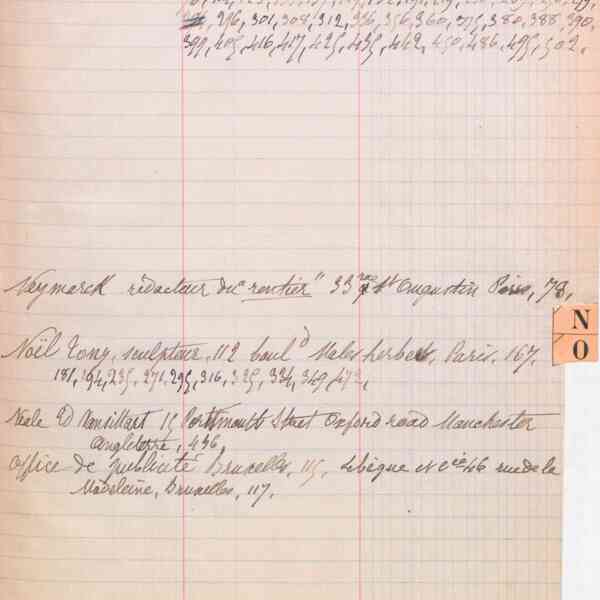 296, 301, 308, 312, 336, 356, 360, 375, 380, 388, 390,
399, 405, 416, 417, 425, 435, 442, 450, 486, 495, 502.
Neymarck rédacteur du "rentier" 33 rue St Augustin Paris, 78,
N
O
Noël Tony, sculpteur, 112 bould Malesherbes, Paris. 167.
181, 194, 235, 271, 295, 316, 325, 334, 349, 472,
Neale Ed Vansittart 15 Portsmouth Street Oxford road Manchester
Angleterre, 436,
Office de publicité Bruxelles, 115. Lebègue et Cie 46 rue de la
Madeleine, Bruxelles, 117.